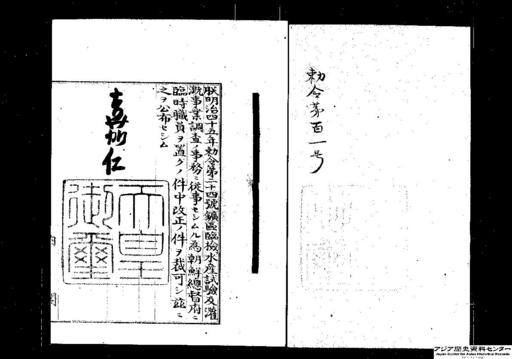 勅令第百一号
朕明治四十五年勅令第二十四號鑛區臨檢水産試驗及灌
漑事業調査ノ事務ニ從事セシムル為朝鮮總督府ニ
臨時職員ヲ置クノ件中改正ノ件ヲ裁可シ茲ニ
之ヲ公布セシム
嘉仁
天皇
御璽
内閣
アジア歴史資料センター
Japan Center for Asian Historical Records